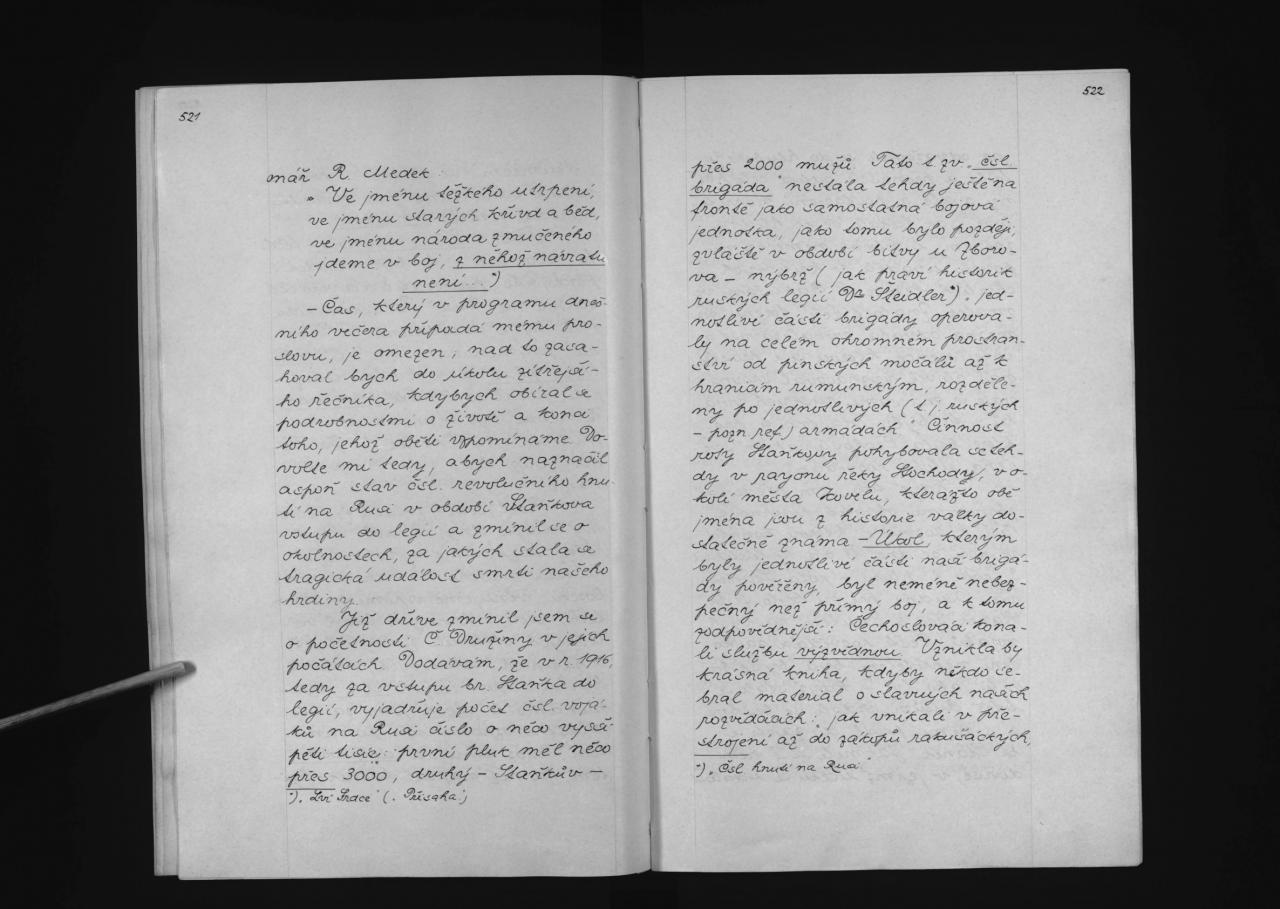 521
onář R. Medek:
„Ve jménu těžkého utrpení,
ve jménu starých křivd a běd,
ve jménu národa zmučeného
jdeme v boj, z něhož návratu
není..."*)
– Čas, který v programu dneš-
ního večera připadá mému pro-
slovu, je omezen; nad to zasa-
hoval bych do úkolu zítřejší-
ho řečníka, kdybych obíral se
podrobnostmi o životě a konci
toho, jehož oběti vzpomínáme. Do-
volte mi tedy, abych naznačil
aspoň stav čsl. revolučního hnu-
tí na Rusi v období Staňkova
vstupu do legií a zmínil se o
okolnostech, za jakých stala se
tragická událost smrti našeho
hrdiny.
Již dříve zmínil jsem se
o početnosti Č. Družiny v jejích
počátcích. Dodávám, že v r. 1916,
tedy za vstupu br. Staňka do
legií, vyjadřuje počet čsl. vojá-
ků na Rusi číslo o něco vyšší
pěti tisíc: první pluk měl něco
přes 3000, druhý – Staňkův –
*) „Lví srdce" („Přísaha")
522
přes 2000 mužů. Tato t. zv. „čsl.
brigáda" nestála tehdy ještě na
frontě jako samostatná bojová
jednotka, jako tomu bylo později,
zvláště v období bitvy u Zboro-
va – nýbrž (jak praví historik
ruských legií Dr Steidler*) „jed-
notlivé části brigády operova-
ly na celém ohromném prostran-
ství od pinských močálů až k
hranicím rumunským, rozděle-
ny po jednotlivých (t. j. ruských
– pozn. ref.) armádách." Činnost
roty Staňkovy pohybovala se teh-
dy v rayonu řeky Stochody, v o-
kolí města Kovelu, kterážto obě
jména jsou z historie války do-
statečně známa. – Úkol, kterým
byly jednotlivé části naší brigá-
dy pověřeny, byl neméně nebez-
pečný než přímý boj, a k tomu
zodpovědnější: Čechoslováci kona-
li službu výzvědnou. Vznikla by
krásná kniha, kdyby někdo se-
bral materiál o slavných našich
rozvědčících: jak vnikali v pře-
strojení až do zákopů rakušáckých,
*) „Čsl. hnutí na Rusi"